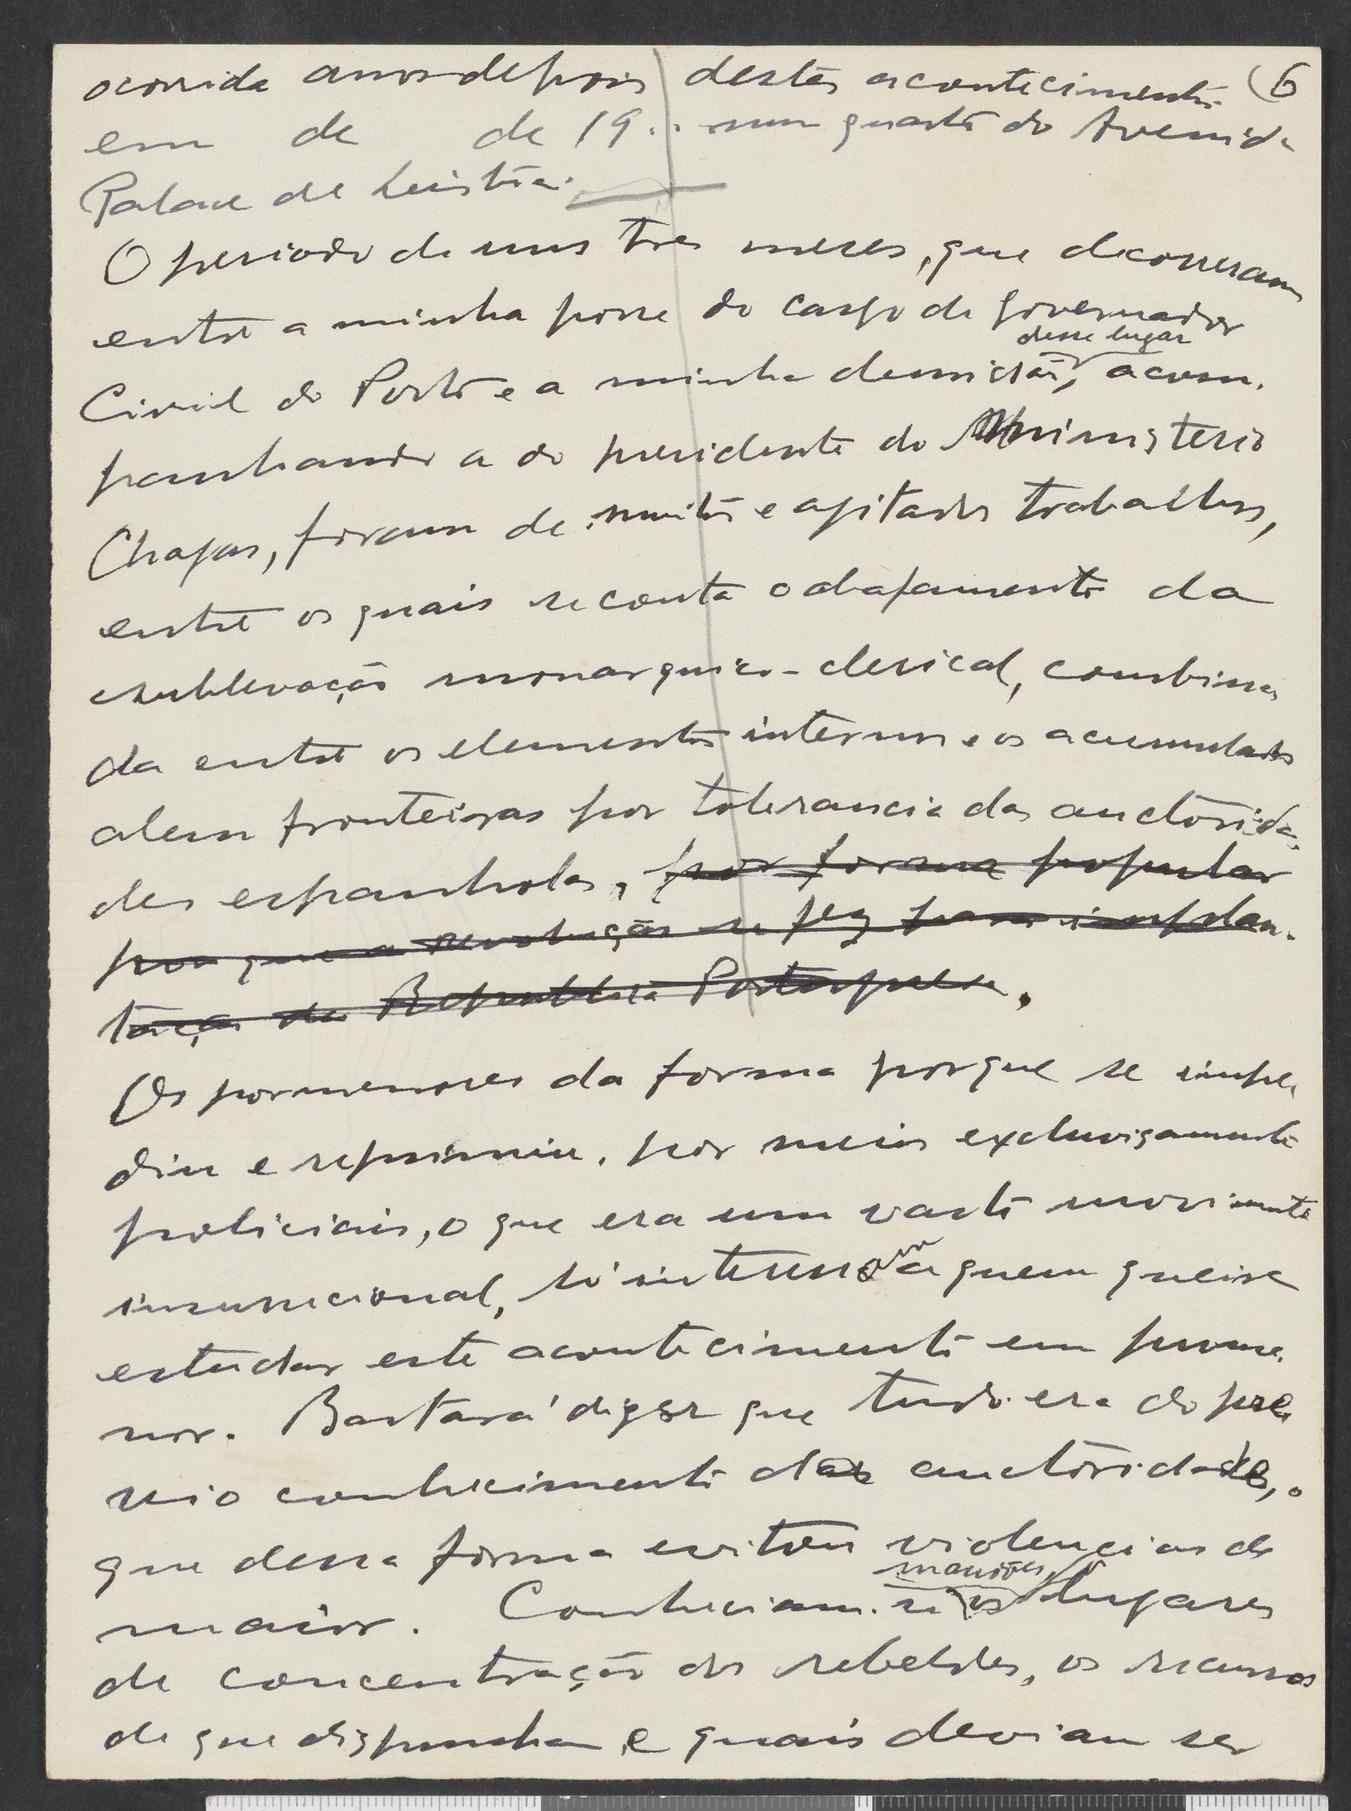 ocorrida anos depois destes acontecimentos 6
em de de 19... num quarto do Avenida
Palace de Lisbôa.
O periodo de uns tres meses, que decorreram
entre a minha posse do cargo de Governador
desse lugar
Civil do Porto e a minha demissão, acom-
panhando a do presidente do Ministerio
Chagas, foram de muitos e agitados trabalhos,
entre os quais se conta o abafamento da
sublevação monarquico-clerical, combina-
da entre os elementos internos e os acumulados
alem fronteiras por tolerancia das auctorida-
des espanholas, por forma popular
por que a revolução se fez para implan-
tação da Republica Portuguesa.
Os pormenores da forma porque se impe-
diu e reprimiu, por meios exclusivamente
policiais, o que era um vasto movimento
insurrecional, só interessam a quem queira
estudar este acontecimento em porme-
nor. Bastará dizer que tudo era do pre-
vio conhecimento das auctoridades, o
que dessa forma evitou violencias de
maior. Conheciam-se os lugares
de concentração dos rebeldes, os recursos
de que dispunham e quais deviam ser